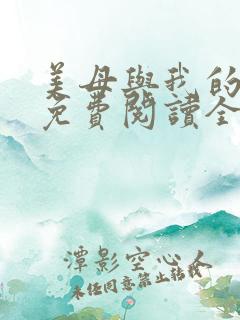 美母與我的
免費閱讀全
潭影空心人
未经同意禁止转载